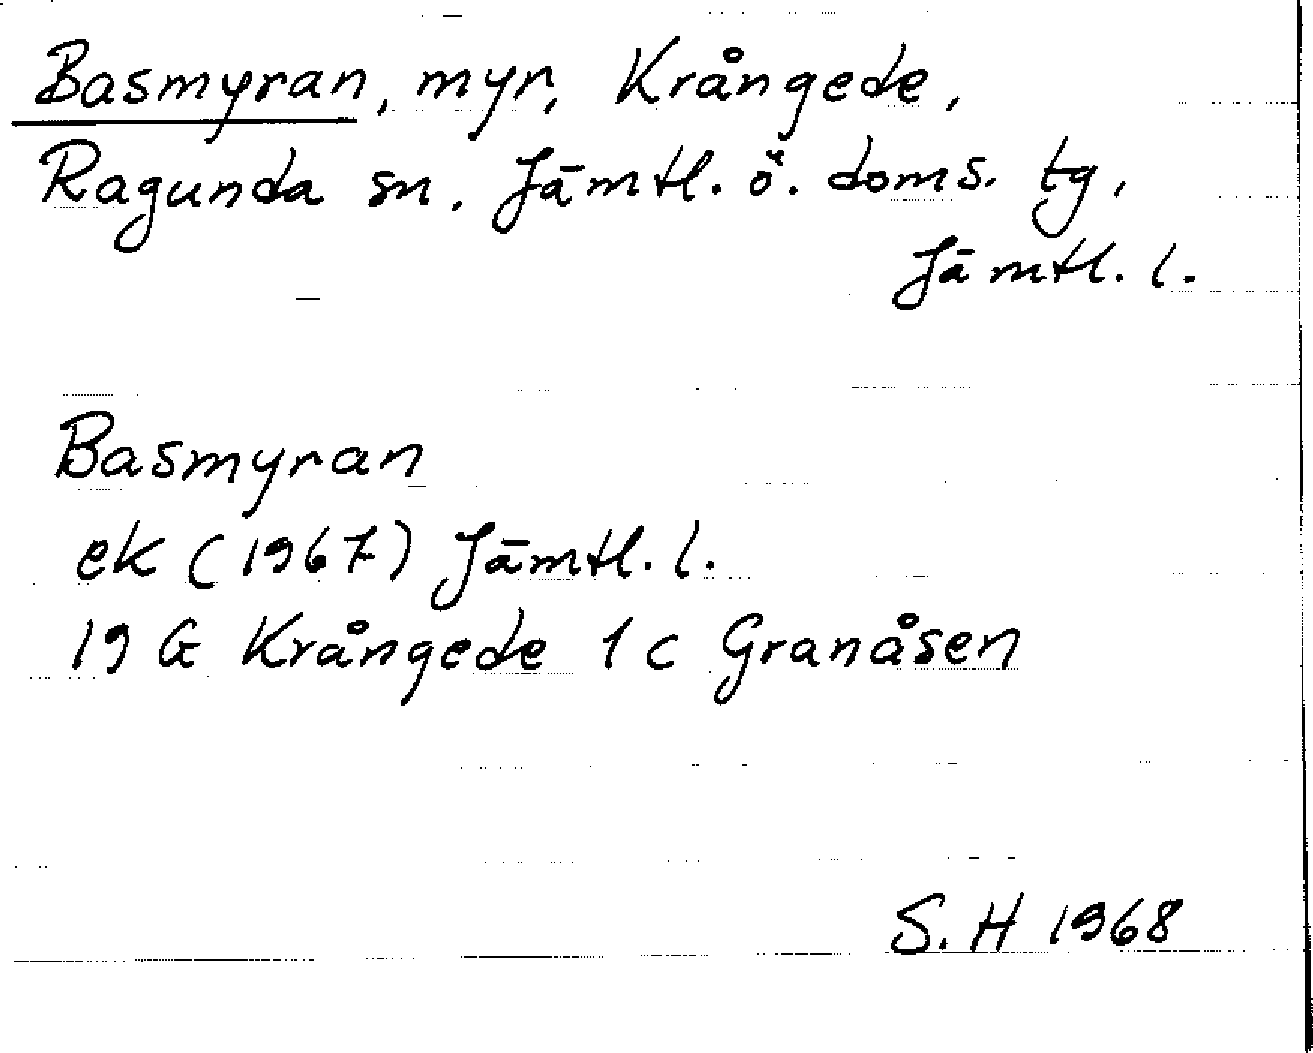 Basmyran, myr, Krångede,
Ragunda sn. Jämtl. ö. doms. tg,
Jämtl. l.
Basmyran
ek (1967) Jämtl. l.
19 G Krångede 1 c Granåsen
S. H 1968